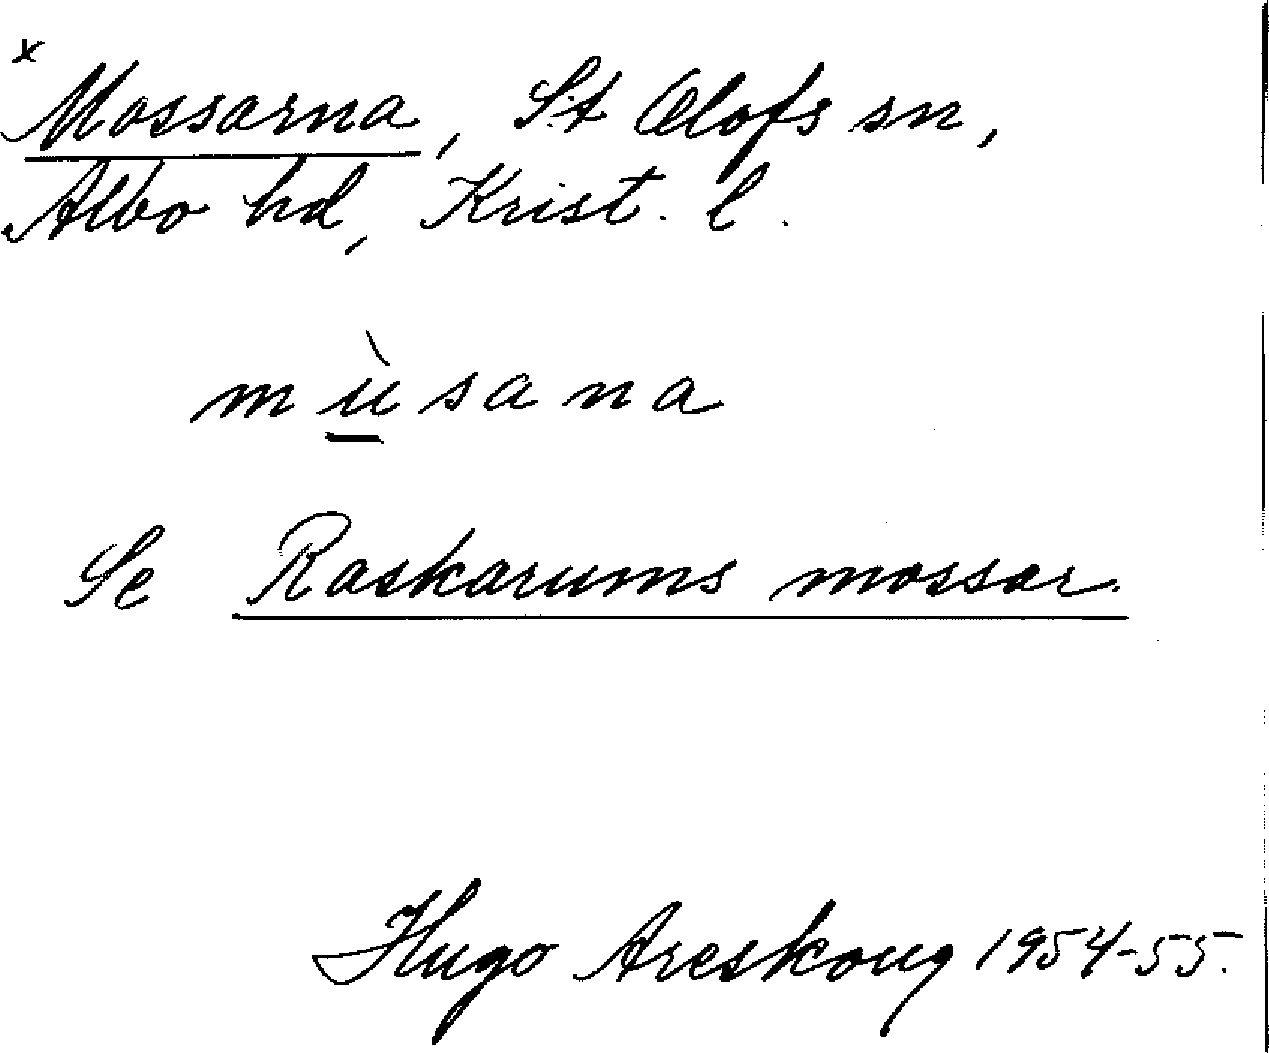 x
Mossarna, S:t Olofs sn,
Albo hd, Krist. l.
mùsana
Se Raskarums mossar.
Hugo Areskoug 1954-55.